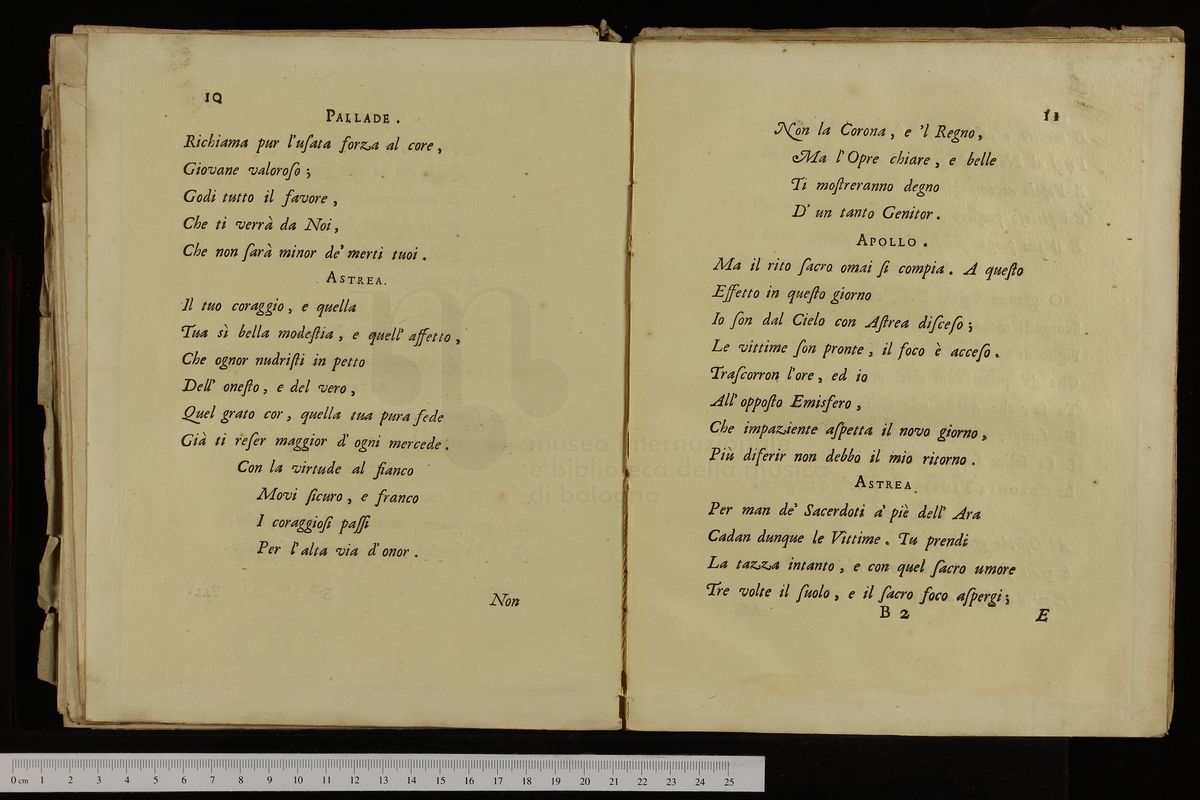 10
PALLADE.
Richiama pur l'uſata forza al core,
Giovane valoroſo;
Godi tutto il favore,
Che ti verrà da Noi,
Che non ſarà minor de' merti tuoi.
ASTREA.
Il tuo coraggio, e quella
Tua sì bella modeſtia, e quell' affetto,
Che ognor nudriſti in petto
Dell' oneſto, e del vero,
Quel grato cor, quella tua pura fede
Già ti reſer maggior d' ogni mercede.
Con la virtude al fianco
Movi ſicuro, e franco
I coraggioſi paſſi
Per l'alta via d'onor.
Non
11
Non la Corona, e 'l Regno,
Ma l'Opre chiare, e belle
Ti moſtreranno degno
D' un tanto Genitor.
APOLLO.
Ma il rito ſacro omai ſi compia. A queſto
Effetto in queſto giorno
Io ſon dal Cielo con Aſtrea diſceſo;
Le vittime ſon pronte, il foco è acceſo.
Traſcorron l'ore, ed io
All' oppoſto Emisfero,
Che impaziente aſpetta il novo giorno,
Più diferir non debbo il mio ritorno.
ASTREA.
Per man de' Sacerdoti a' piè dell' Ara
Cadan dunque le Vittime. Tu prendi
La tazza intanto, e con quel ſacro umore
Tre volte il ſuolo, e il ſacro foco aſpergi;
B 2
E
museo internazionale
e biblioteca della musica
di bologna
0 cm 1 2 3 4 5 6 7 8 9 10 11 12 13 14 15 16 17 18 19 20 21 22 23 24 25